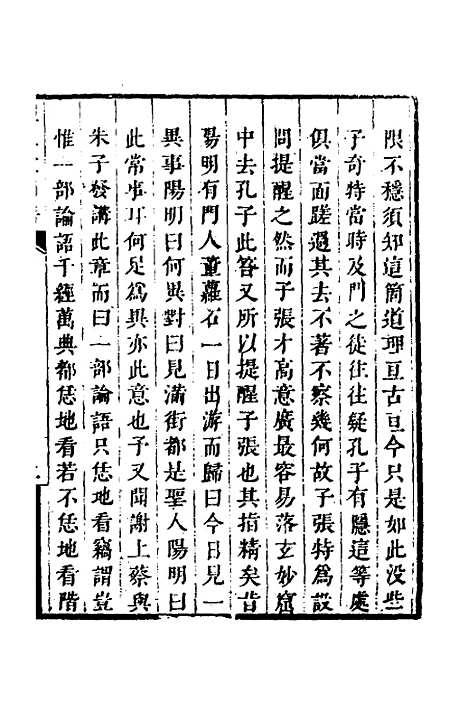 限不穩須知這箇道理亘古亘今只是如此没些
子奇特當時及門之徒往往疑孔子有隱這等處
俱當面蹉過其去不著不察幾何故子張特為設
問提醒之然而子張才高意廣最容易落玄妙窟
中去孔子此答又所以提醒子張也其指精矣昔
陽明有門人董蘿石一日出游而歸曰今日見一
異事陽明曰何異對曰見滿街都是聖人陽明曰
此常事耳何足為異亦此意也予又聞謝上蔡與
朱子發講此章而曰一部論語只恁地看竊謂豈
惟一部論語千經萬典都恁地看若不恁地看階